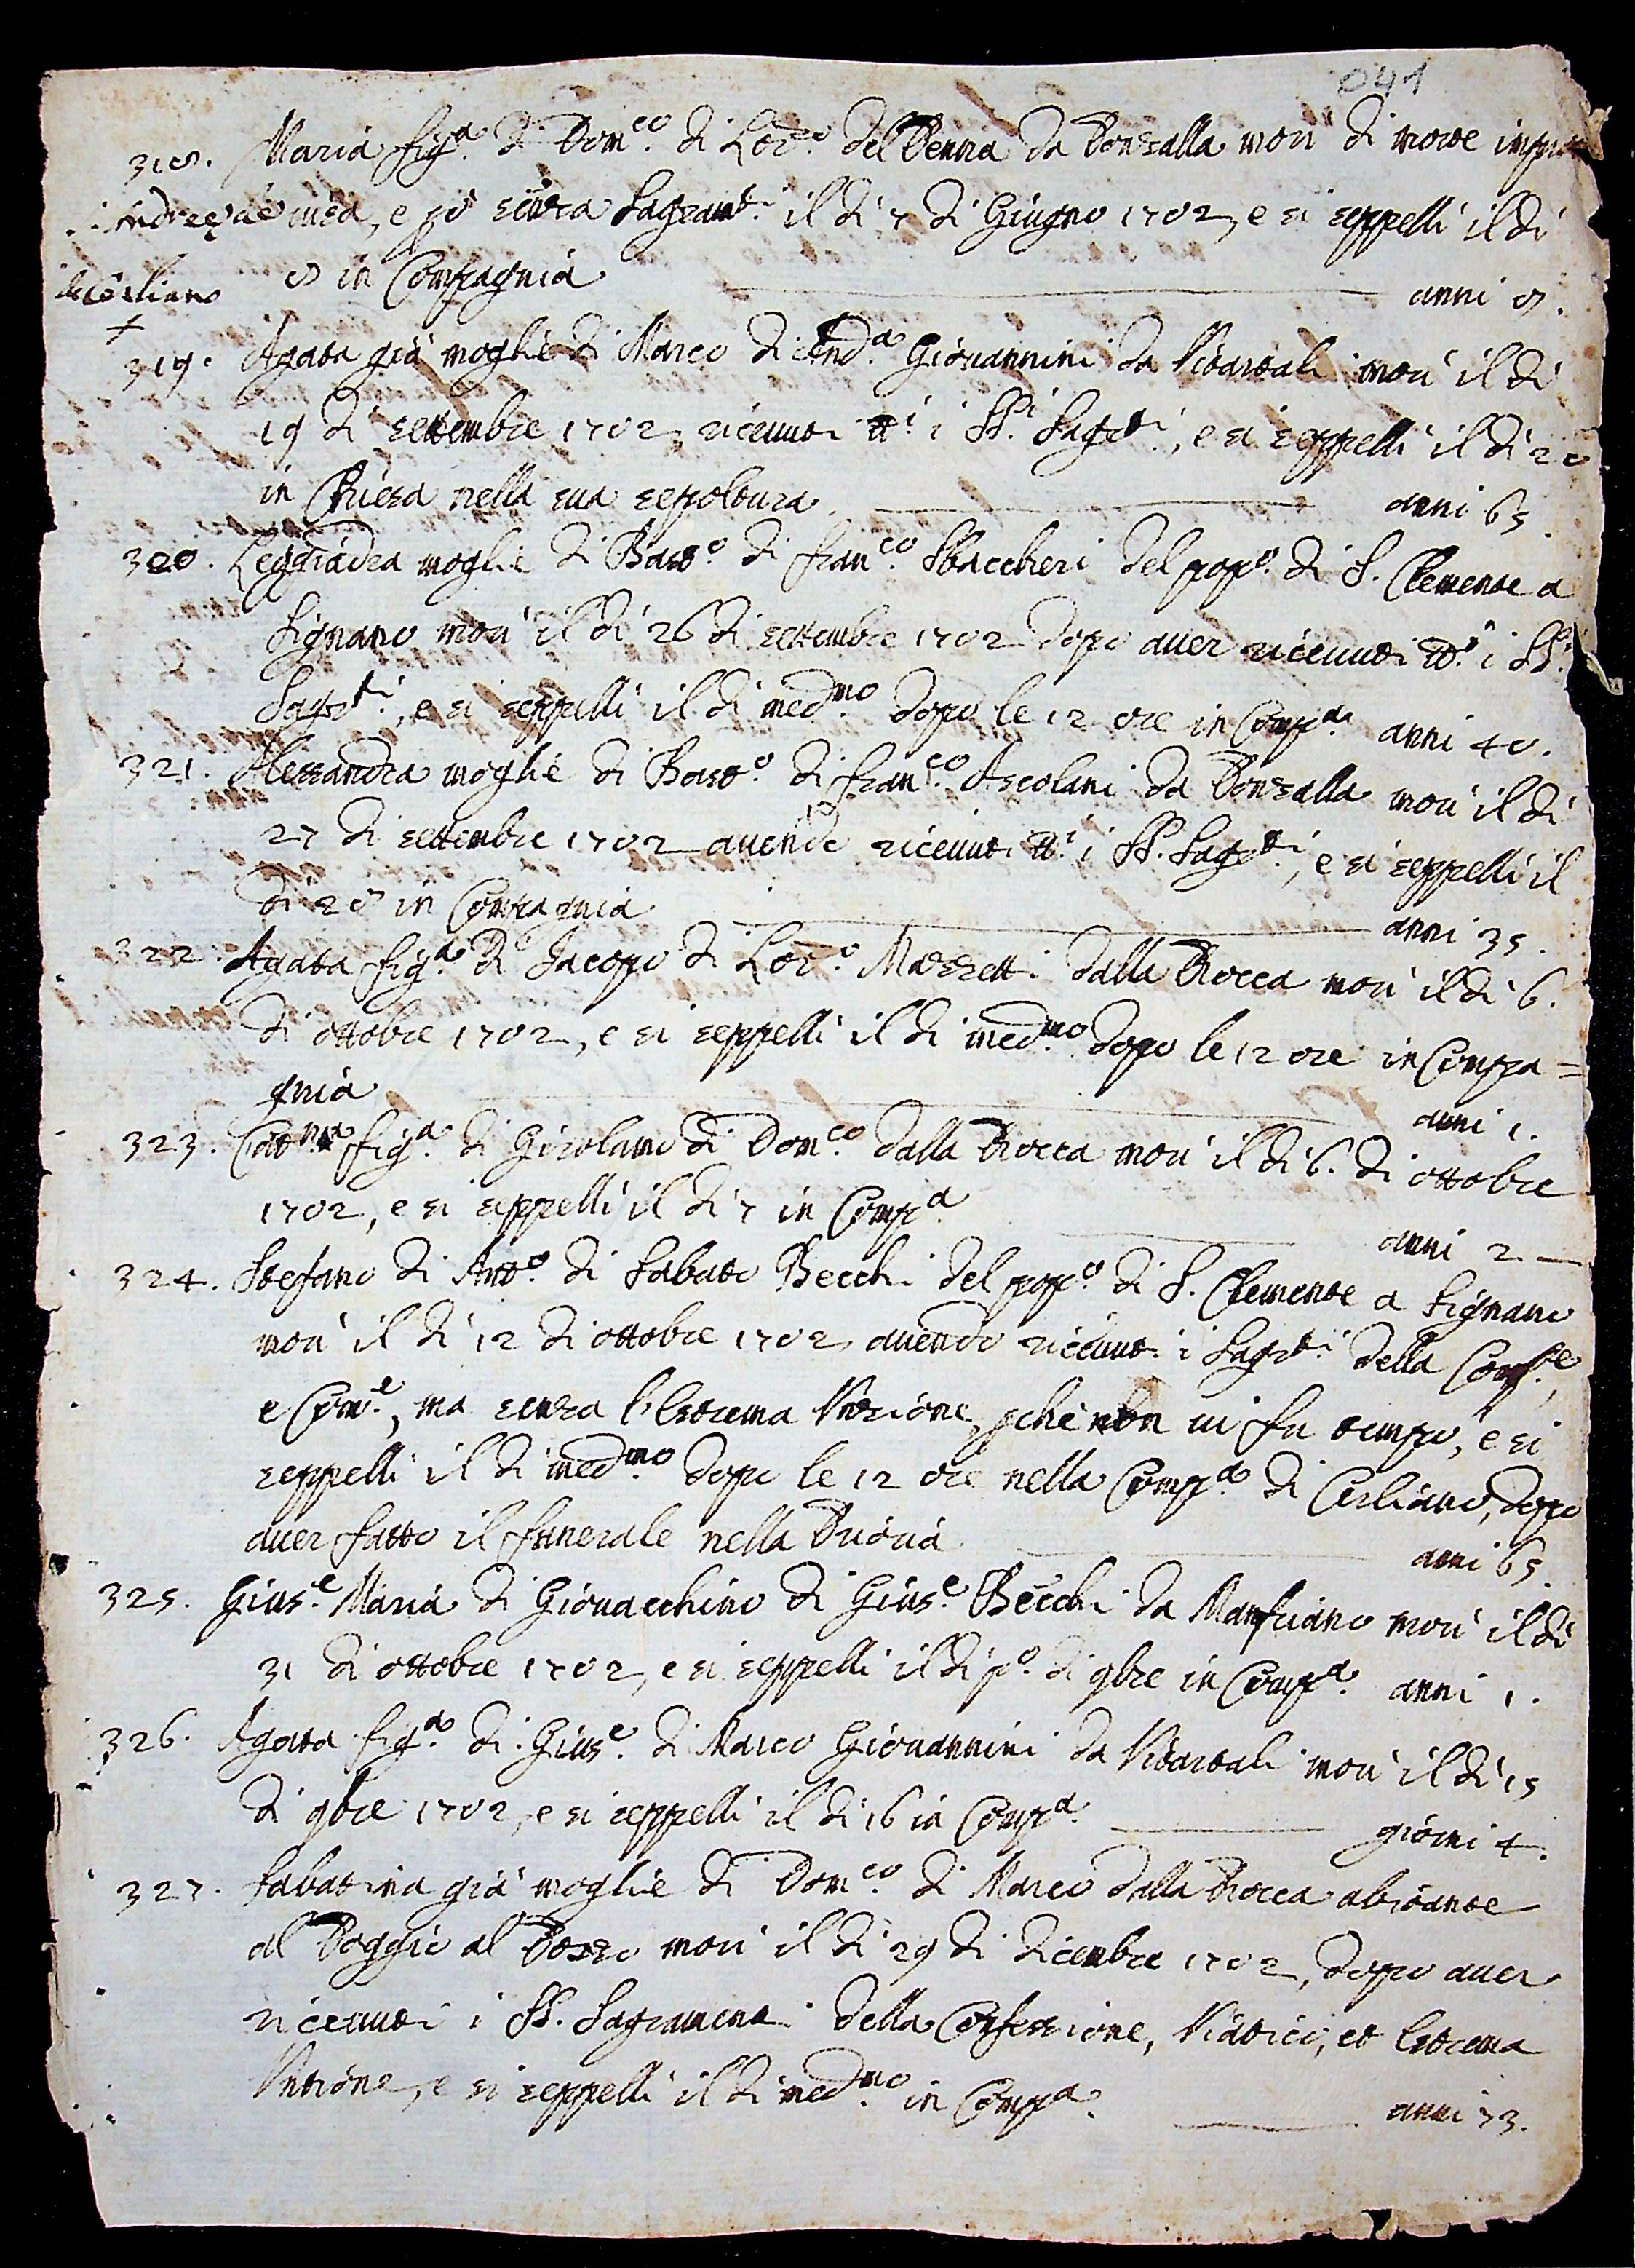 041
318. Maria fig.a di Dom.co di Lor.o del Penna da Ponzalla morì di morte impro=
uisa, e p.ò senza Sagram.ti il dì 7 di Giugno 1702, e si seppellì il dì
8 in Compagnia anni 8.
di Cerliano
+
319. Agata già moglie di Marco di And.a Giouannini da Vitartali morì il dì
19 di settembre 1702, riceuuti tt.i i SS.i Sagr.ti, e si seppellì il dì 20
in Chiesa nella sua sepoltura. anni 65.
320. Leggiadra moglie di Bart.o di Fran.co Sbaccheri del pop.o di S. Clemente a
Signano morì il dì 26 di settembre 1702 dopo auer riceuuti tt.i i SS.i
Sagr.ti, e si seppellì il dì med.mo dopo le 12 ore in Comp.a anni 40.
321. Alessandra moglie di Bart.o di Fran.co Ascolani da Ponzalla morì il dì
27 di settembre 1702 auendo riceuuti tt.i i SS. Sagr.ti, e si seppellì il
dì 28 in Compagnia anni 35.
322. Agata fig.a di Jacopo di Lor.o Mazzetti dalla Rocca morì il dì 6.
di ottobre 1702, e si seppellì il dì med.mo dopo le 12 ore in Compa=
gnia anni 1.
323. Cat.na fig.a di Girolamo di Dom.co dalla Rocca morì il dì 6. di ottobre
1702, e si seppellì il dì 7 in Comp.a anni 2
324. Stefano di Ant.o di Sabato Becchi del pop.o di S. Clemente a Signano
morì il dì 12 di ottobre 1702, auendo riceuuti i Sagr.ti della Conf.e,
e Com.e, ma senza l'Estrema Unzione, pchè non ui fu tempo, e si
seppellì il dì med.mo dopo le 12 ore nella Comp.a di Cerliano, dopo
auer fatto il funerale nella Prioria anni 65.
325. Gius.e Maria di Giouacchino di Gius.e Becchi da Manfriano morì il dì
31 di ottobre 1702, e si seppellì il dì p.o di 9bre in Comp.a anni 1.
326. Agata fig.a di Gius.e di Marco Giouannini da Vitartali morì il dì 15
di 9bre 1702, e si seppellì il dì 16 in Comp.a giorni 4.
327. Sabatina già moglie di Dom.co di Marco dalla Rocca abitante
al Poggio al Pozzo morì il dì 29 di dicembre 1702, dopo auer
riceuuti i SS. Sagramenti della Confessione, Viatico, et Estrema
Untione, e si seppellì il dì med.mo in Comp.a anni 73.